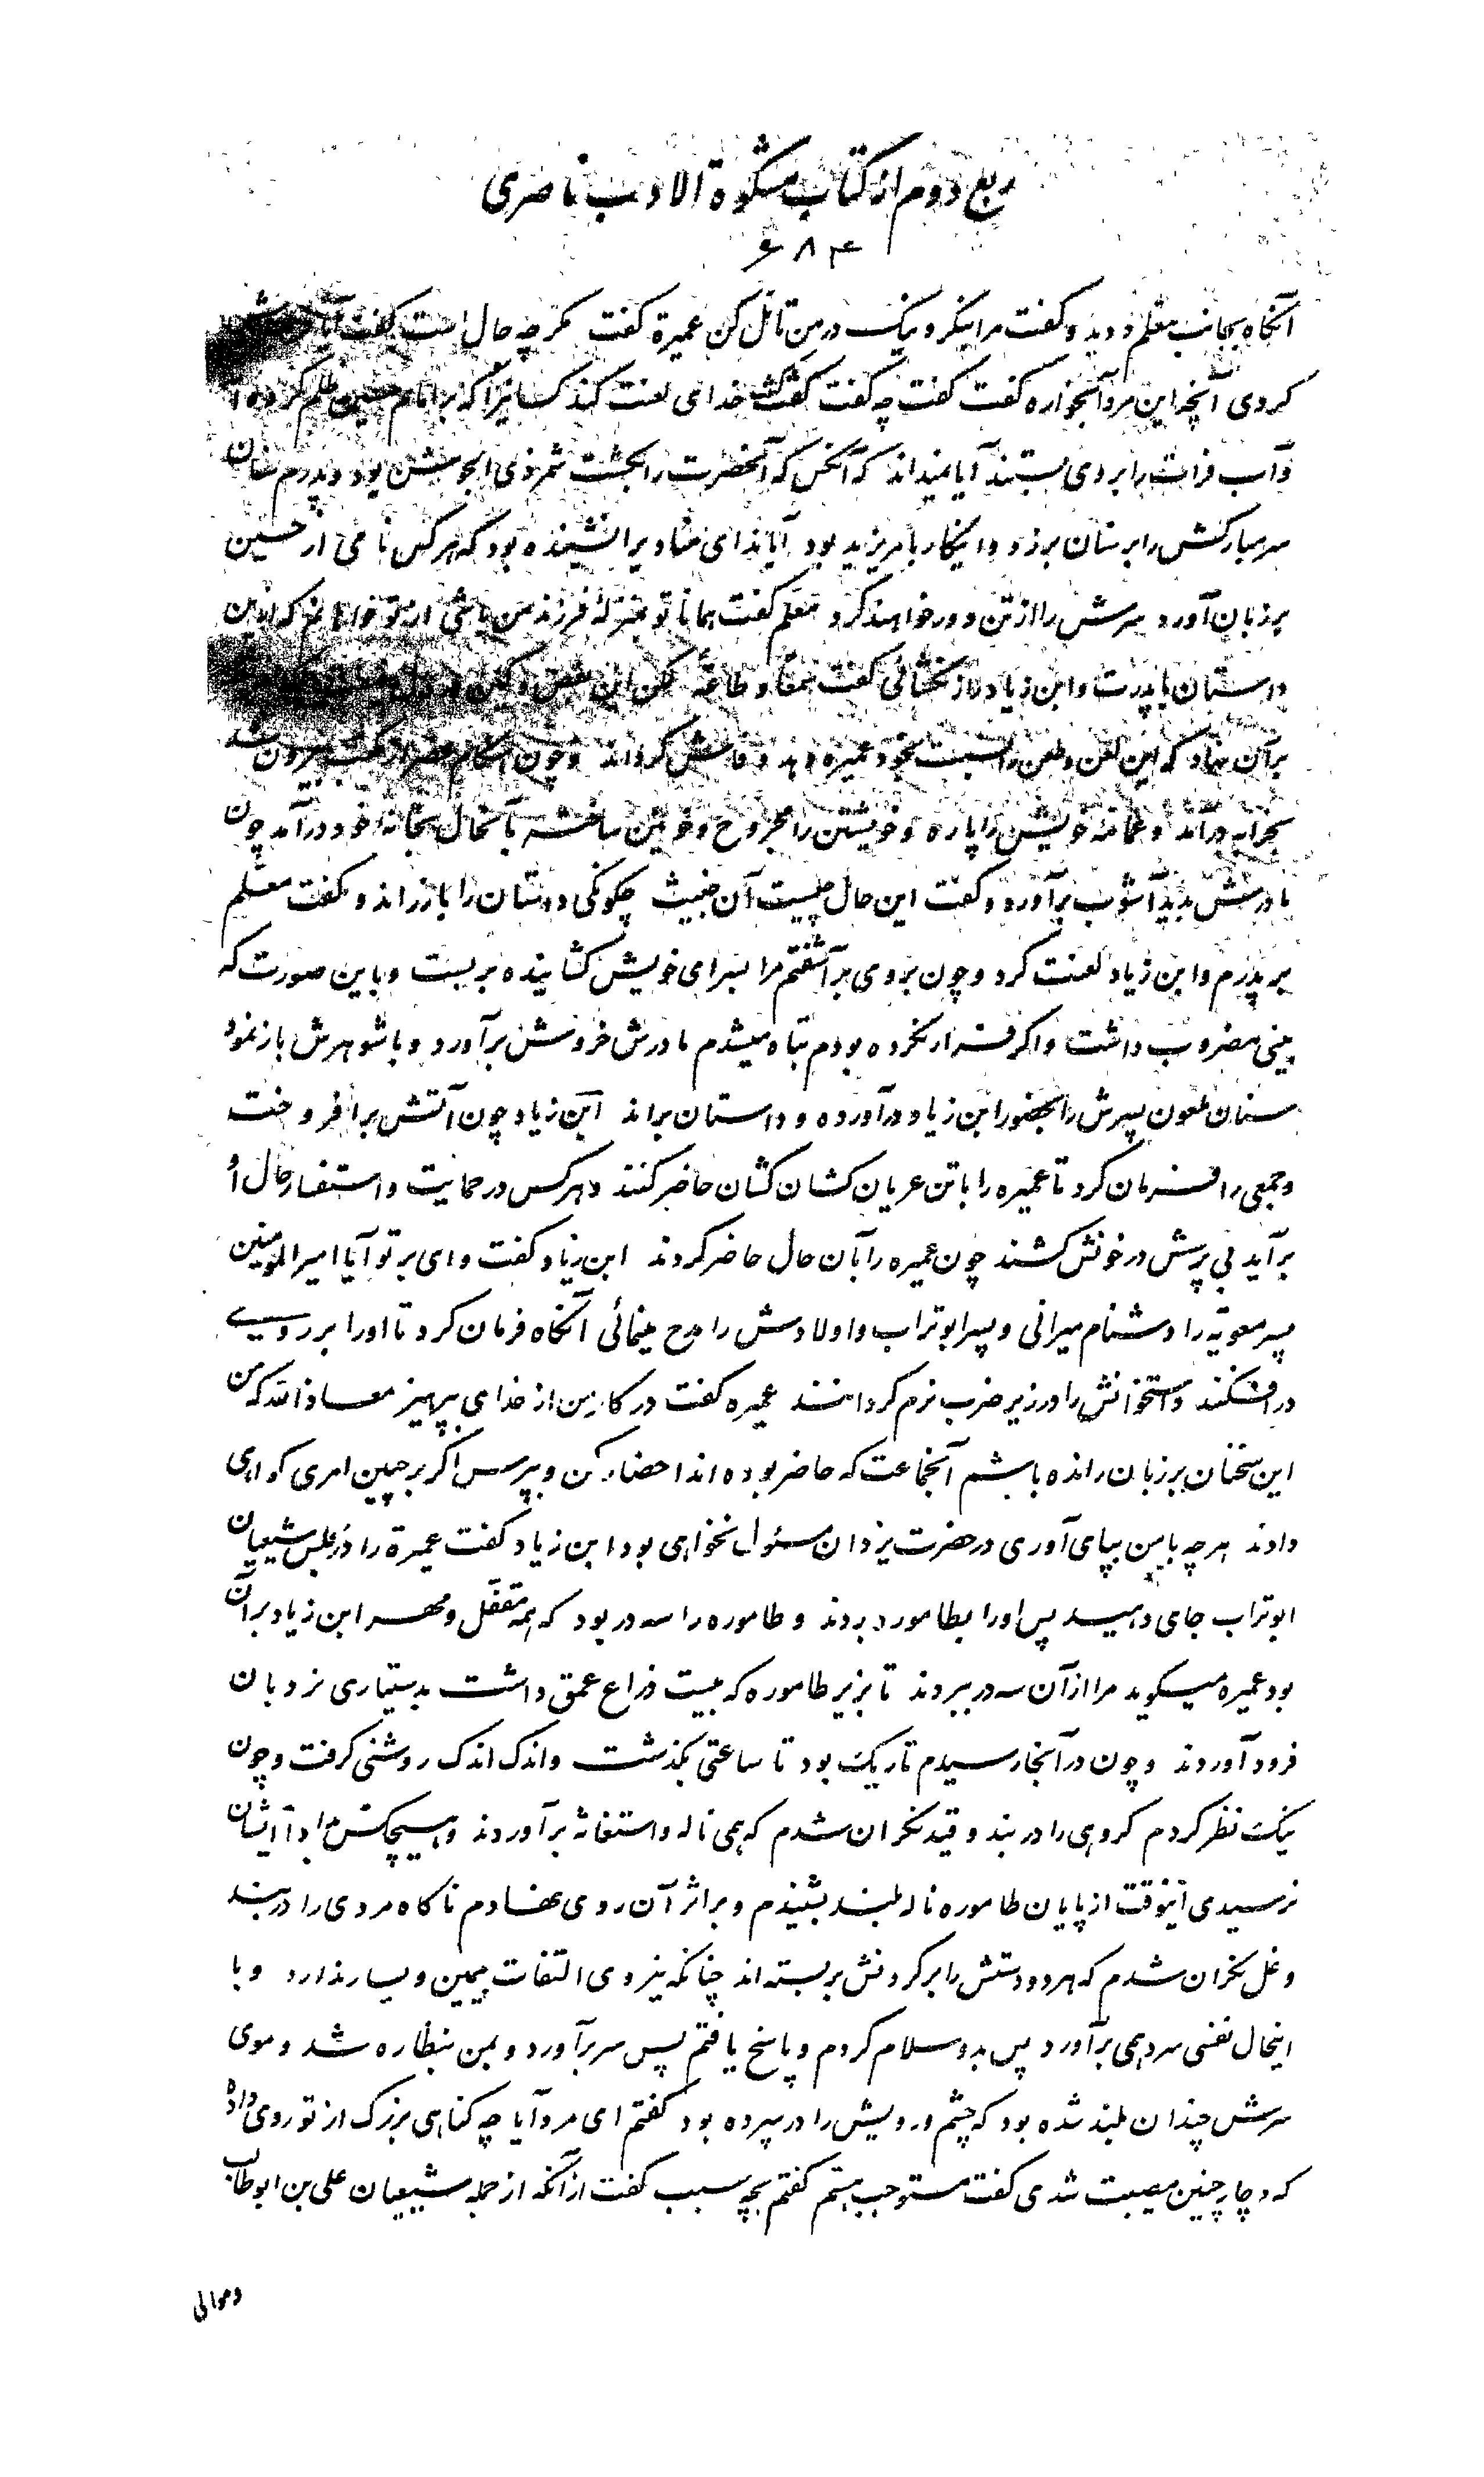 ربع دوم از کتاب مشکوة الادب ناصری
۶۸۴
آنگاه بجانب معلم دوید و گفت مرا بنگر و نیک در من تامل کن عمیرة گفت مگر چه حال است گفت آیا
کردی آنچه این مرد آبخواره گفت گفت چه گفت گفت خدای لعنت کند کسانیرا که بر امام حسین ظلم کردند
و آب فرات را بروی بستند آیا نمیداند که آنکس که آنحضرت را بکشت شمر ذی الجوشن بود و پدرم سنان
سر مبارکش را بر سنان برزد و اینکار بامر یزید بود آیا ندای منادیرا نشنیده بود که هر کس نامی از حسین
بر زبان آورد سرش را از تن دور خواهند کرد معلم گفت همانا تو بمنزلهٔ فرزند من باشی از تو خواهانم که ازین
داستان با پدرت و ابن زیاد لاز نگشائی گفت سمعاً و طاعةً لکن این
بر آن نهاد که این لعن و طعن را نسبت بخود عمیره دهد و فاش گرداند و چون هنگام عصر از مکتب بیرون شد
بخرابه درآمد و عمامهٔ خویش را پاره و خویشتن را مجروح و خونین ساخته بآنحال بخانهٔ خود درآمد چون
مادرش بدید آشوب برآورد و گفت این حال چیست آن خبیث چگونگی داستان را باز راند و گفت معلم
بر پدرم و ابن زیاد لعنت کرد و چون بروی برآشفتم مرا بسرای خویش کشانیده بربست و باین صورت که
بینی مضروب داشت و اگر فرار نکرده بودم تباه میشدم مادرش خروش برآورد و با شوهرش باز نمود
سنان ملعون پسرش را بحضور ابن زیاد درآورده و داستان براند ابن زیاد چون آتش برافروخت
و جمعی را فرمان کرد تا عمیره را با تن عریان کشان کشان حاضر کنند و هر کس در حمایت و استفسار حال او
برآید بی پرسش در خونش کشند چون عمیره را بآن حال حاضر کردند ابن زیاد گفت وای بر تو آیا امیرالمومنین
پسر معویة را دشنام میرانی و پسر ابوتراب و اولادش را مدح مینمائی آنگاه فرمان کرد تا او را بر روی
درافکنند و استخوانش را در زیر ضرب نرم گردانند عمیره گفت در کار من از خدای بپرهیز معاذ الله که من
این سخنان بر زبان رانده باشم آنجماعت که حاضر بوده اند احضار کن و بپرس اگر بر چنین امری گواهی
دادند هر چه با من بپای آوری در حضرت یزدان مسئول نخواهی بود ابن زیاد گفت عمیرة را در محبس شیعیان
ابوتراب جای دهید پس او را بطاموره بردند و طاموره را سه در بود که همه مقفل و مهر ابن زیاد بر آن
بود عمیره میگوید مرا از آن سه در ببردند تا بزیر طاموره که بیست ذراع عمق داشت بدستیاری نردبان
فرود آوردند و چون در آنجا رسیدم تاریک بود تا ساعتی بگذشت و اندک اندک روشنی گرفت و چون
نیک نظر کردم گروهی را در بند و قید نگران شدم که همی ناله و استغاثه برآوردند و هیچکس را بداد ایشان
نرسیدی اینوقت از پایان طاموره ناله بلند بشنیدم و بر اثر آن روی نهادم ناگاه مردی را در بند
و غل نگران شدم که هر دو دستش را بر گردنش بربسته اند چنانکه نیروی التفات بیمین و یسار ندارد و با
اینحال نفسی سرد همی برآورد پس بدو سلام کردم و پاسخ یافتم پس سر برآورد و بمن بنظاره شد و موی
سرش چندان بلند شده بود که چشم و رویش را در سپرده بود گفتم ای مرد آیا چه گناهی بزرگ از تو روی داده
که دچار چنین مصیبت شدی گفت مستوجب هستم گفتم بچه سبب گفت از آنکه از جمله شیعیان علی بن ابوطالب
و موالی